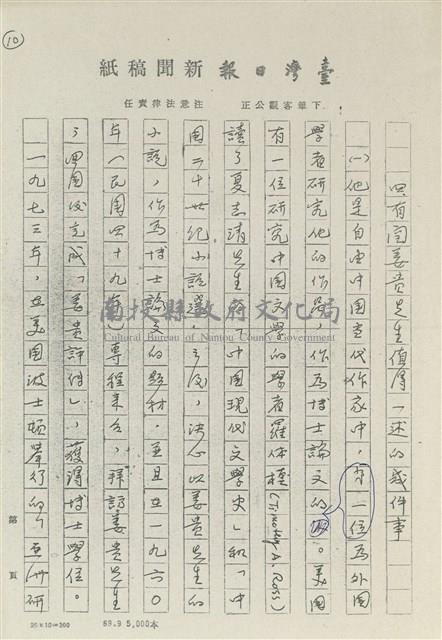 ⑩
臺灣日報新聞稿紙
下筆客觀公正　注意法律責任
四有關姜貴先生值得一述的幾件事
(一)他是自由中國當代作家中，第一位為外國
學者研究他的作品，作為博士論文的。美國
有一位研究中國文學的學者羅體模(Timothy A. Ross)
讀了夏志清先生「中國現代文學史」和「中
國二十世紀小說選」之後，決心以姜貴先生的
小說，作為博士論文的題材。並且在一九六〇
年(民國四十九年)專程來台，拜訪姜貴先生
，回國後完成「姜貴評傳」，獲得博士學位。
一九七三年，在美國波士頓舉行的「亞洲研
第　頁
26×10=260
69.9 5,000本
南投縣政府文化局
Cultural Bureau of Nantou County Government